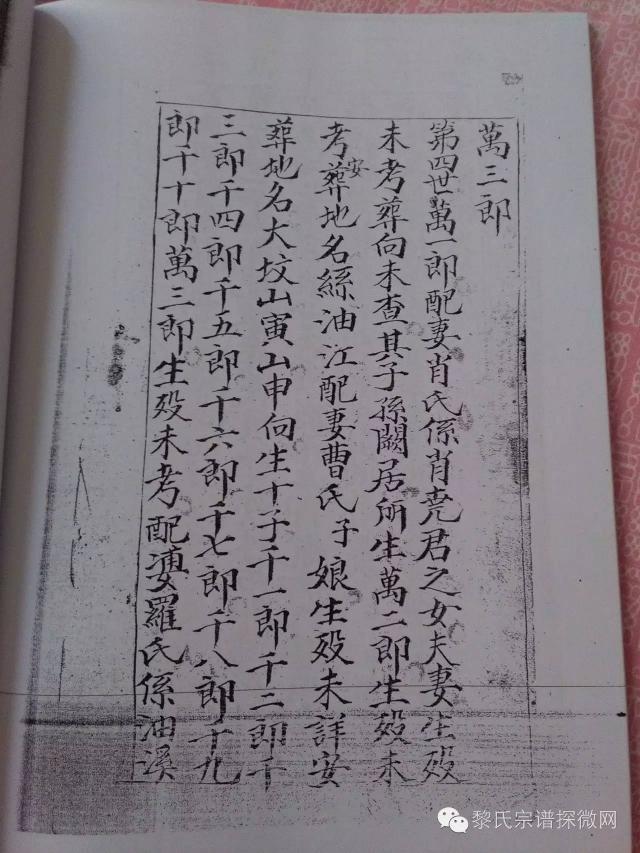 萬三郎
第四世萬一郎配妻肖氏係肖堯君之女夫妻生殁
未考葬向未查其子孫闕居所生萬二郎生殁未
考安葬地名絲油江配妻曹氏子娘生殁未詳安
葬地名大坟山寅山申向生十子千一郎千二郎千
三郎千四郎千五郎千六郎千七郎千八郎千九
郎千十郎萬三郎生殁未考配妻羅氏係油溪
黎氏宗谱探微网